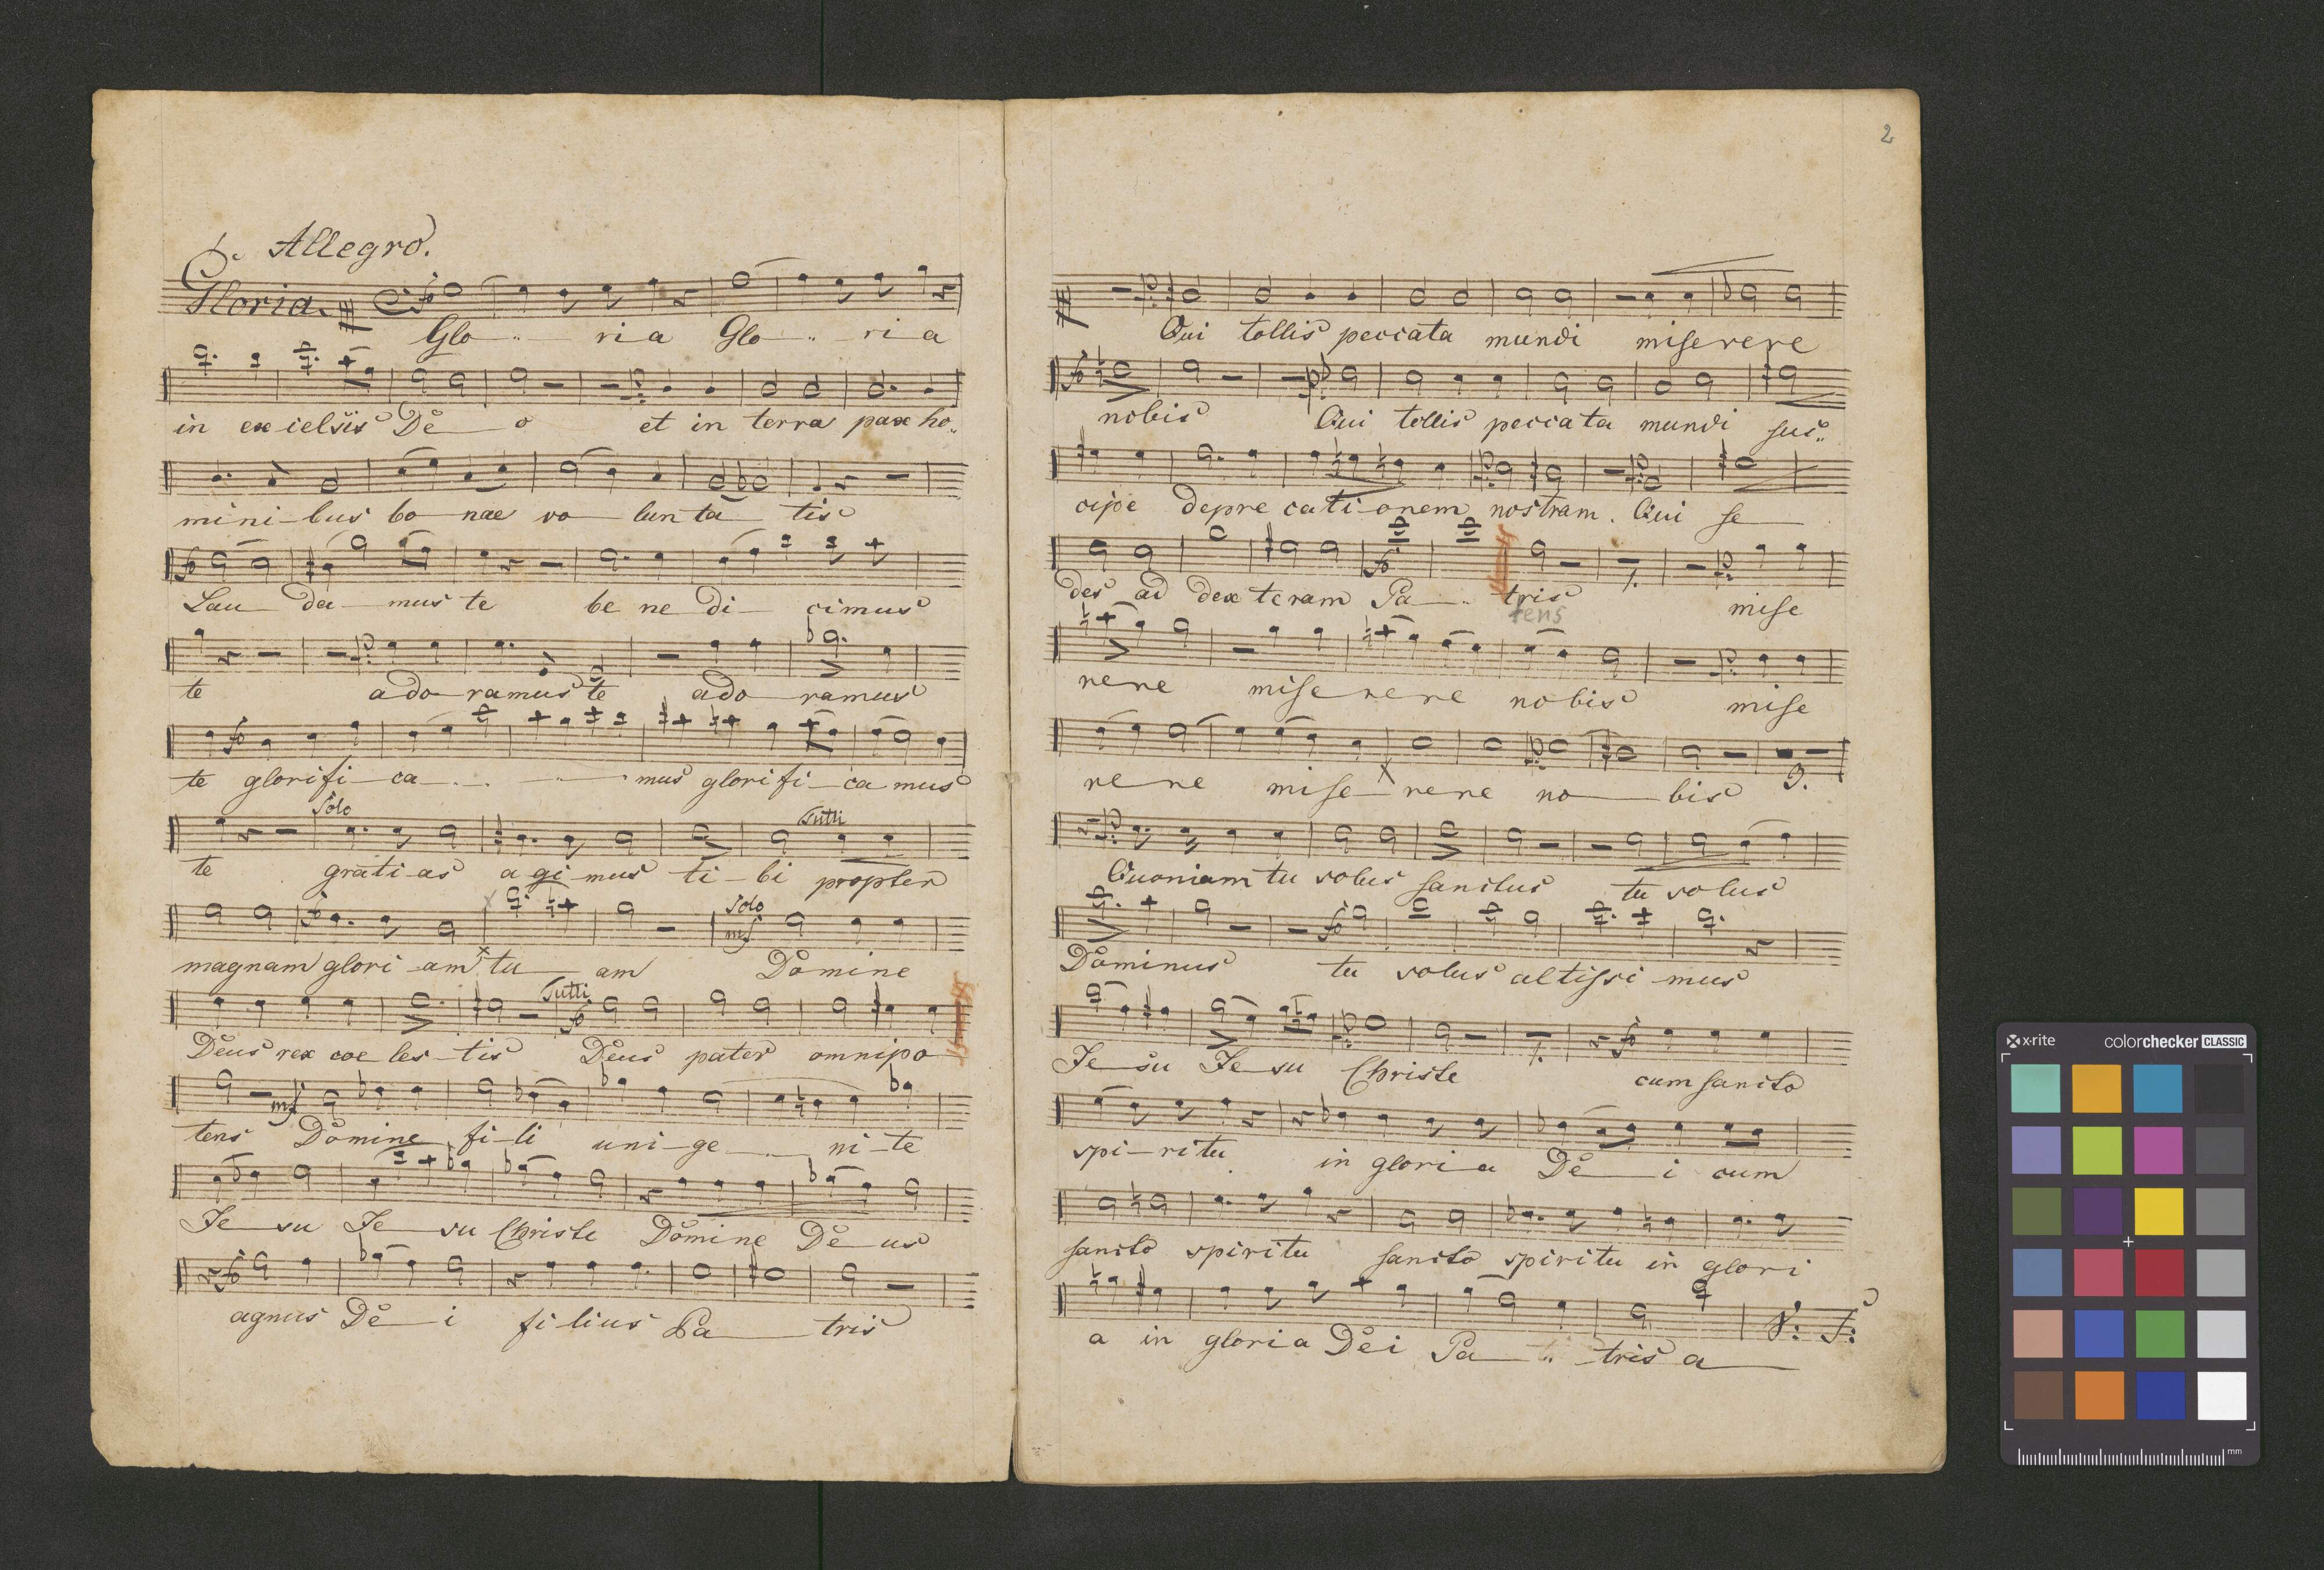 Allegro.
Gloria. fo
Glo - ri a Glo - ri a
in excielsis Deo et in terra pax ho„
mini-bus bo nae vo lunta tis
fo
Lau da mus te be ne di cimus
te ado ramus te ado ramus
fo
te glorifi ca mus glorifi ca mus
Solo Tutti
te grati-as agimus ti-bi propter
Solo
mf
magnam glori am tu am Domine
Tutti
fo
Deus rex coe les-tis Deus pater omnipo
mf
tens Domine fi-li uni-ge ni-te
Je su Je su Christe Domine De us
fo
agnus De i filius Pa tris
2
Qui tollis peccata mundi miserere
fo
nobis Qui tollis peccata mundi sus„
cipe depre cati-onem nostram. Qui se
fo
des ad dexteram Pa tris mise
tens
rere miserere nobis mise
rere mise-rere no bis 3.
Quoniam tu solus sanctus tu solus
fo
Dominus tu solus altissi mus
fo
Je su Je su Christe cum sancto
spi-ritu in gloria De i cum
sancto spiritu sancto spiritu in glori
a in gloria Dei Pa tris a
V: S:
x-rite colorchecker CLASSIC
mm